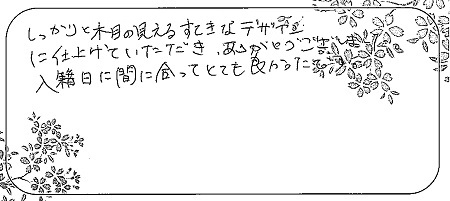 しっかりと木目の見えるすてきなデザイン
に仕上げていただき、ありがとうございます
入籍日に間に合ってとても良かったです